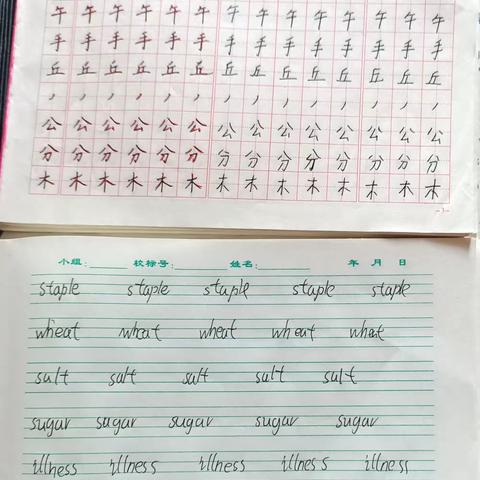 午 午 午 午 午 午 午 午 午 午 午 午 午 午
手 手 手 手 手 手 手 手 手 手 手 手 手 手
丘 丘 丘 丘 丘 丘 丘 丘 丘 丘 丘 丘 丘 丘
公 公 公 公 公 公 公 公 公 公 公 公 公 公
分 分 分 分 分 分 分 分 分 分 分 分 分 分
木 木 木 木 木 木 木 木 木 木 木 木 木 木
小组:______ 校标号:______ 姓名:______ 年 月 日
staple staple staple staple staple
wheat wheat wheat wheat wheat
salt salt salt salt salt
sugar sugar sugar sugar sugar
illness illness illness illness illness